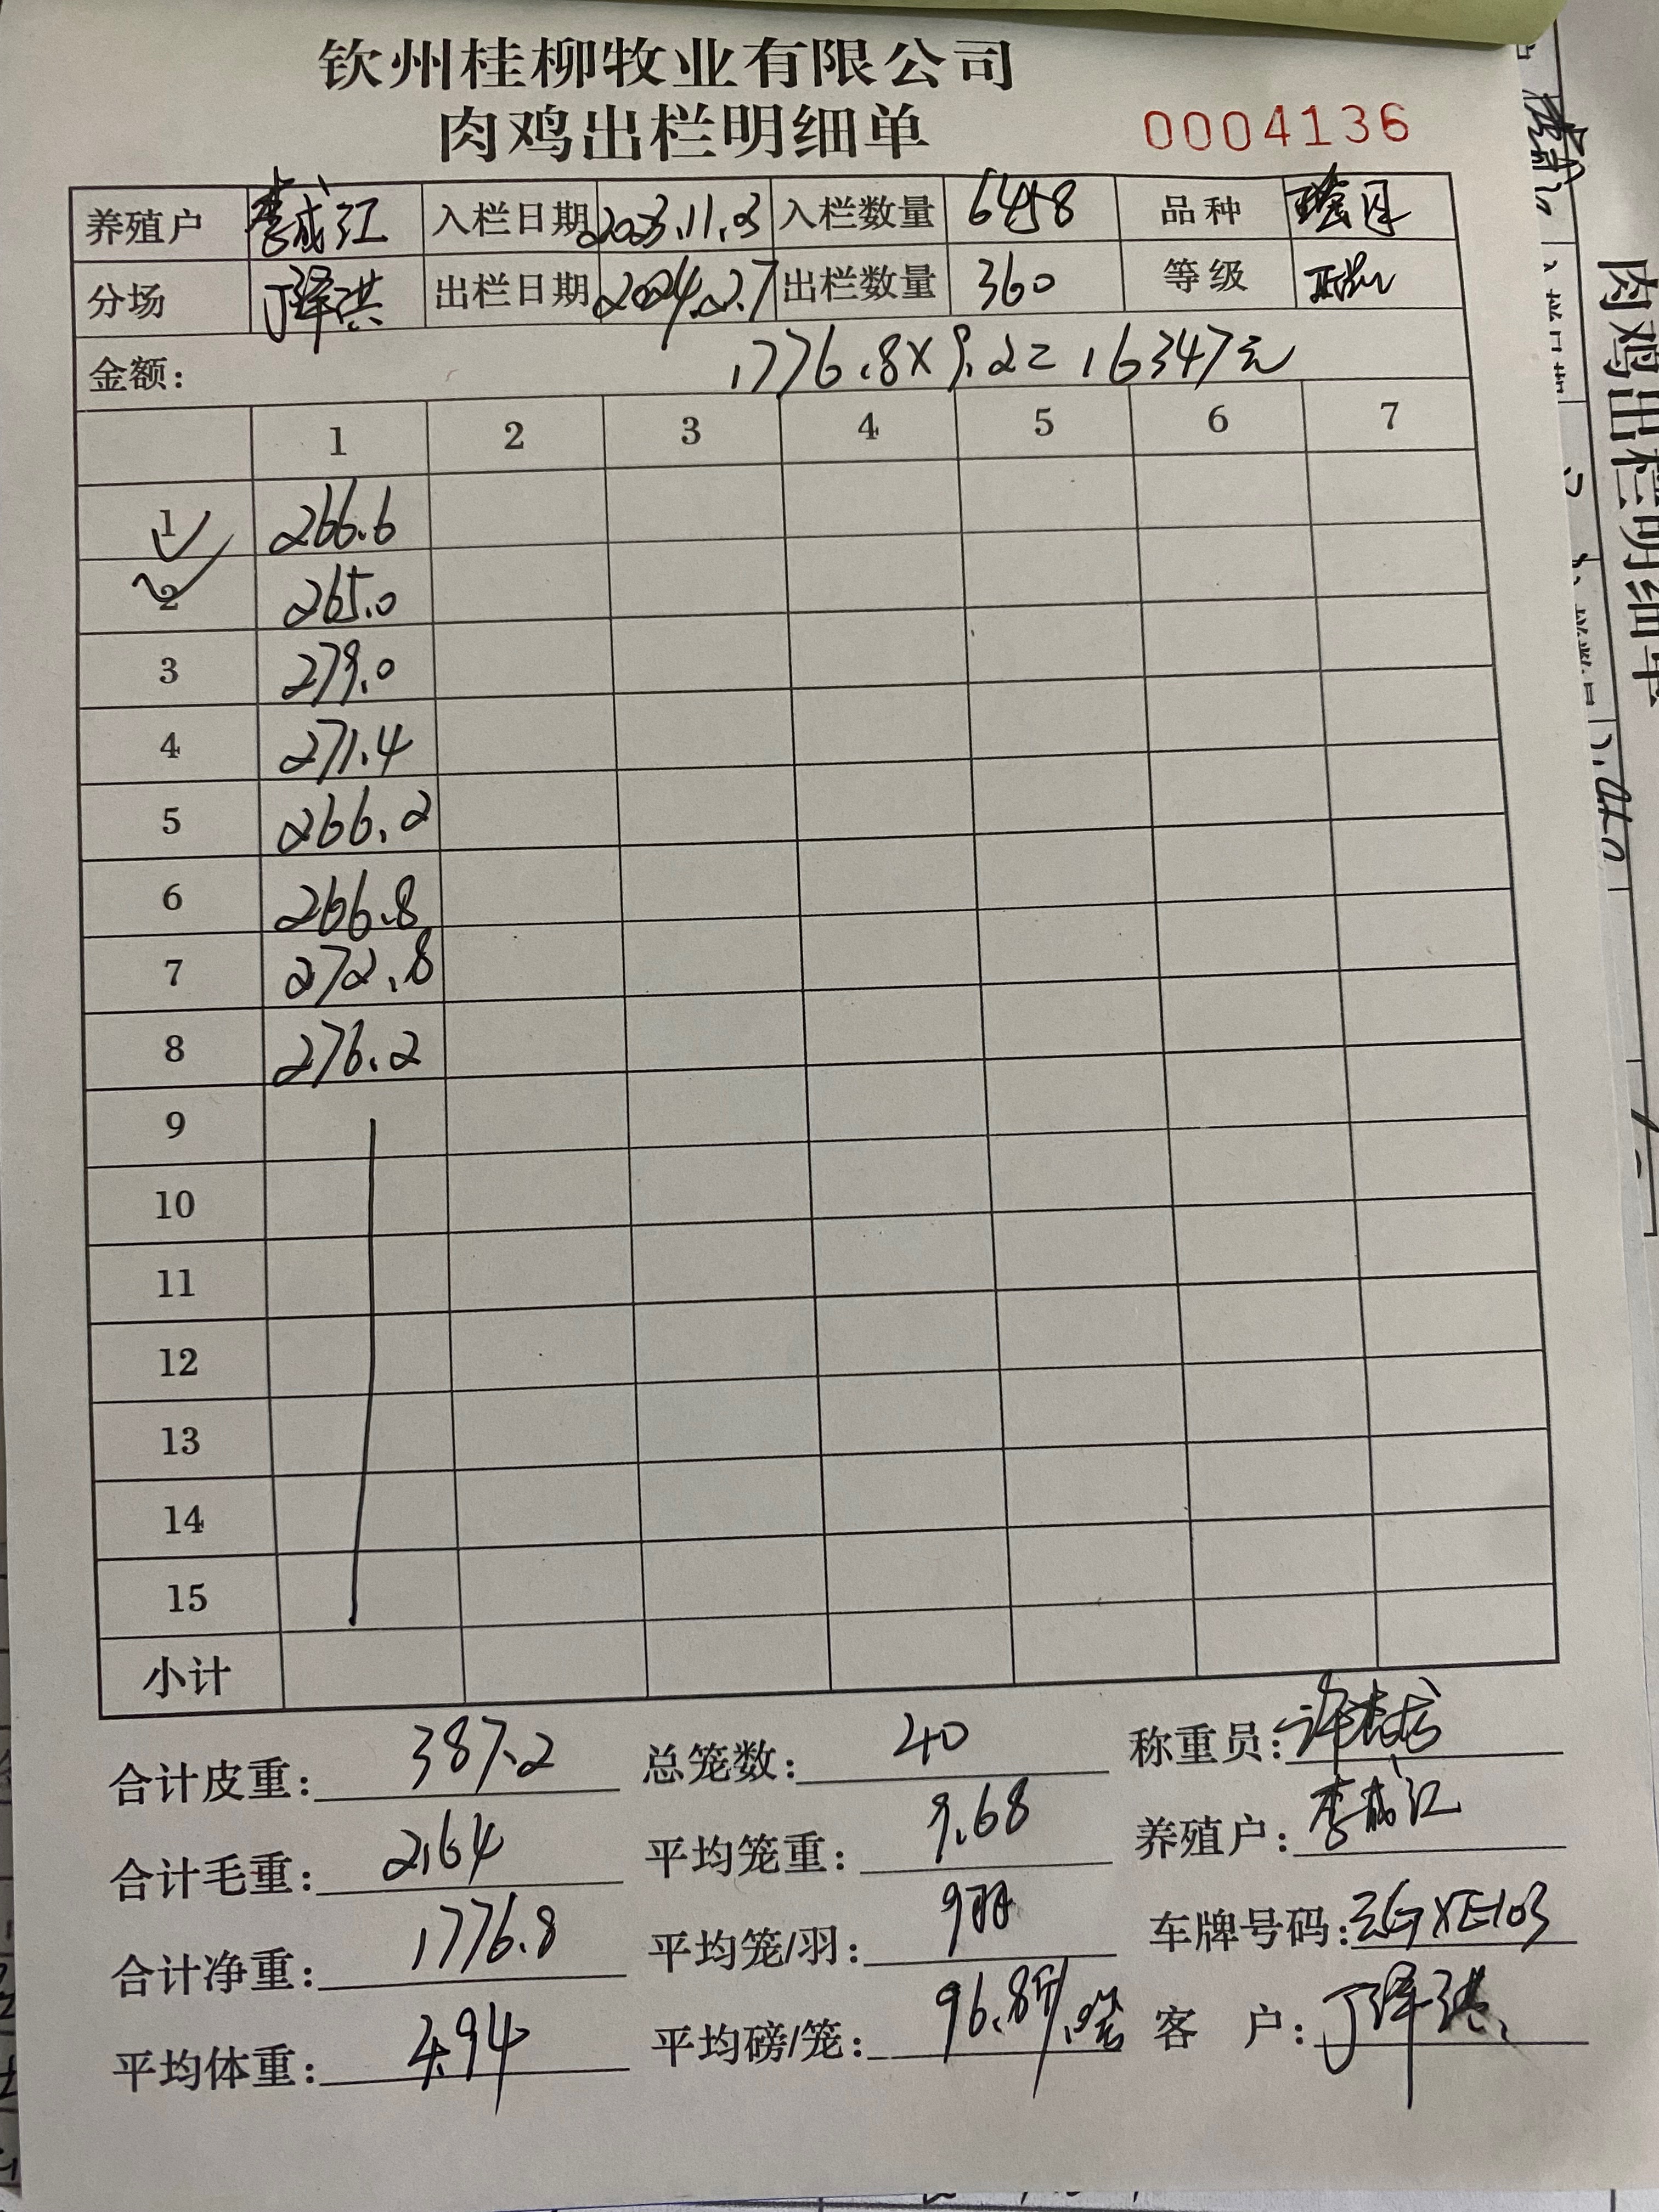 钦州桂柳牧业有限公司
肉鸡出栏明细单 0004136
养殖户 李成江 入栏日期 2023.11.3 入栏数量 6458 品种
分场 丁泽洪 出栏日期 2024.2.7 出栏数量 360 等级
金额: 1776.8×9.2=16347元
1 2 3 4 5 6 7
1 266.6
2 265.0
3 279.0
4 271.4
5 266.2
6 266.8
7 272.8
8 276.2
9
10
11
12
13
14
15
小计
合计皮重: 387.2 总笼数: 40 称重员:
合计毛重: 2164 平均笼重: 9.68 养殖户: 李成江
合计净重: 1776.8 平均笼/羽: 9羽 车牌号码:
平均体重: 4.94 平均磅/笼: 96.8斤 客 户: 丁泽洪
肉鸡出栏明细单